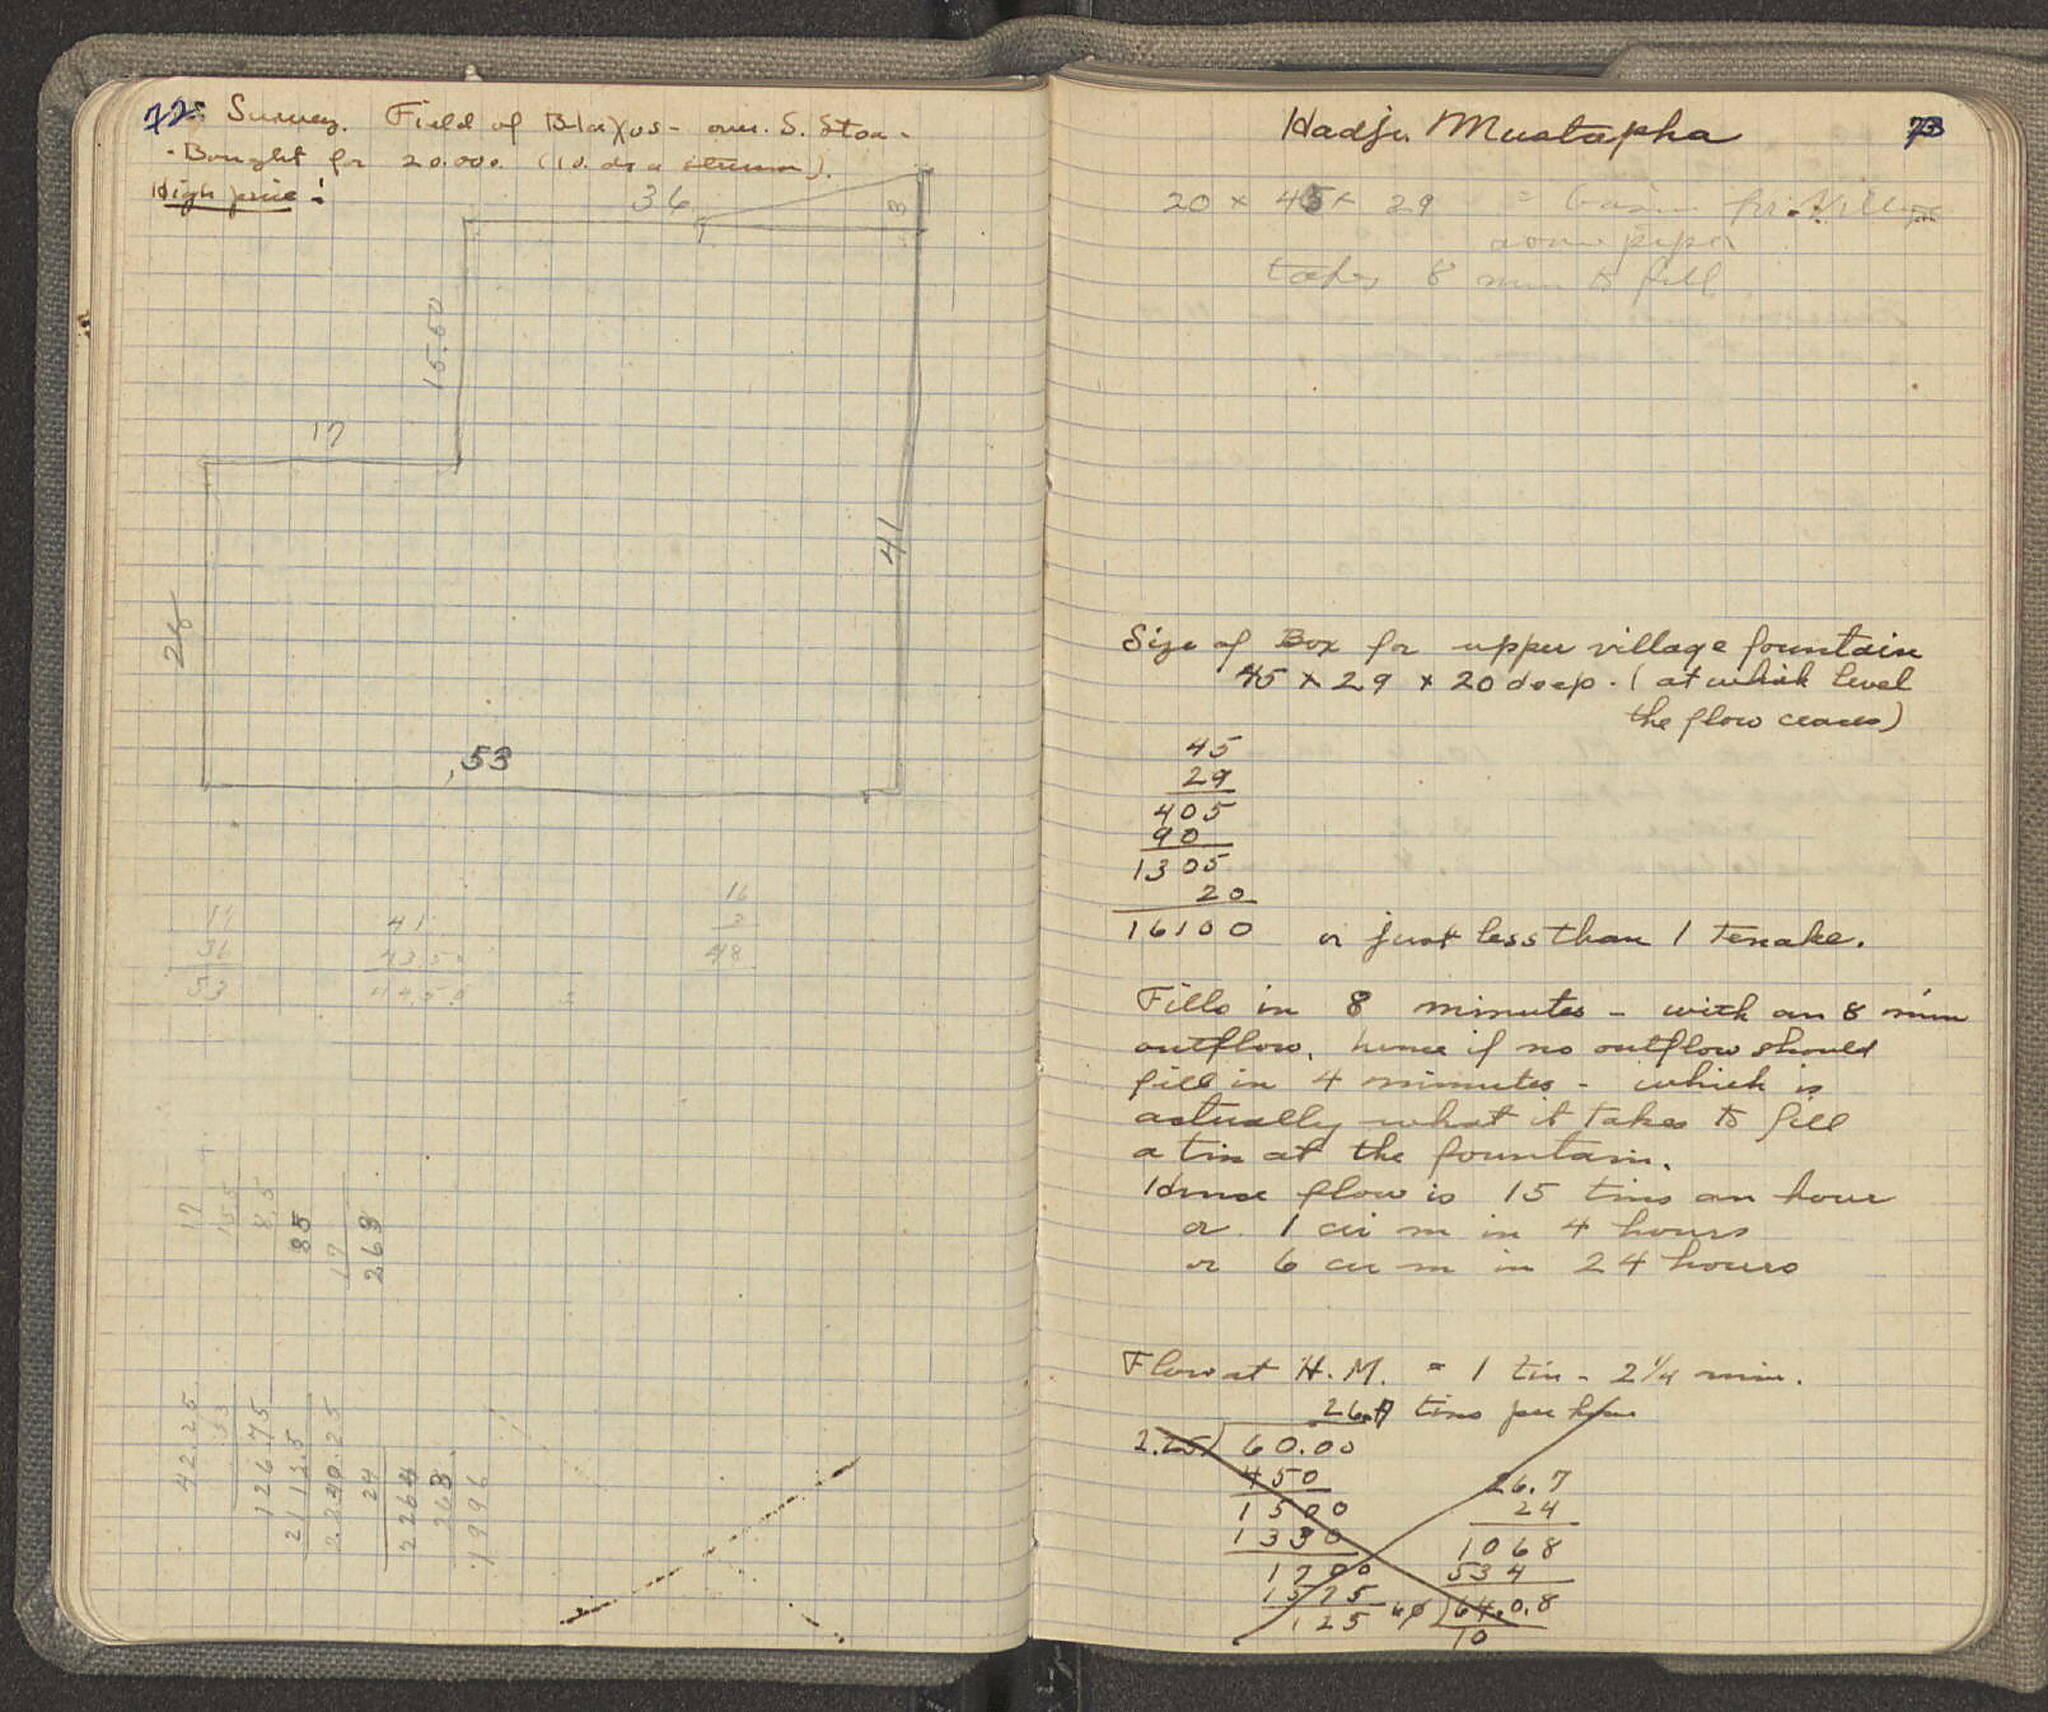 72
Survey. Field of Blaχos - over S. Stoa -
- Bought for 20.000. (10. ds a stremm).
High price!
36
3
15.50
17
41
26
53
17
36
53
41
43.50
16
3
48
17
15.5
8.5
85
17
263
42.25
53
126.75
2112.5
2240.25
24
2264
263
1996
73
Hadji Mustapha
20 × 45 × 29 = basin for village
takes 8 min to fill
Size of Box for upper village fountain
45 × 29 × 20 deep. (at which level
the flow ceases)
45
29
405
90
1305
20
16100 or just less than 1 tenake.
Fills in 8 minutes - with an 8 min
outflow. hence if no outflow should
fill in 4 minutes - which is
actually what it takes to fill
a tin at the fountain.
Hence flow is 15 tins an hour
or 1 cu m in 4 hours
or 6 cu m in 24 hours
Flow at H.M. = 1 tin - 2¼ min.
26.7 tins per hour
2.25) 60.00
450
1500
1330
1700
1575
125
26.7
24
1068
534
60) 640.8
10